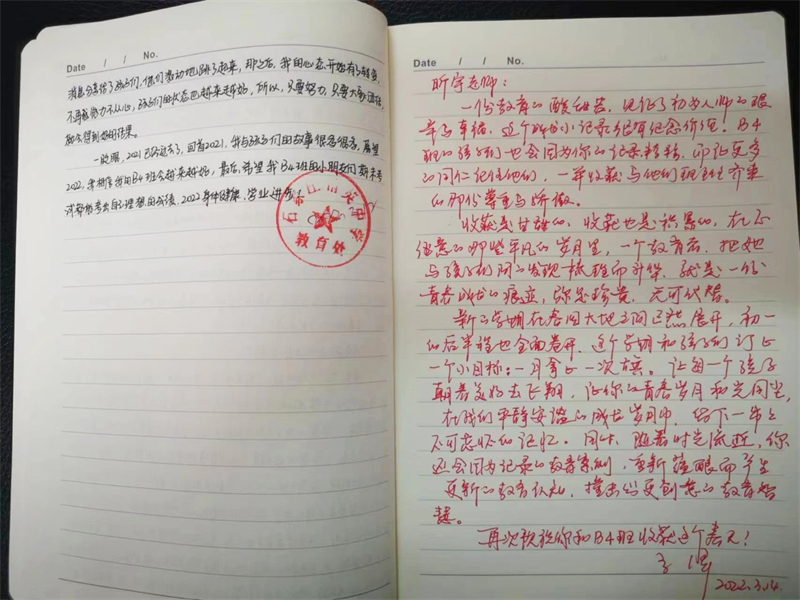 Date / / No.
消息分享给了孩子们，他们激动地跳了起来，那之后，我的心态开始有了转变，
不再感到力不从心，孩子们的状态也越来越好，所以，只要努力，只要大家团结，
都会得到好的结果。
一眨眼，2021已经过去了，回首2021，我与孩子们的故事很多很多，展望
2022，我相信我的B4班会越来越好，最后，希望我B4班的小朋友们期末考
试都能考出自己理想的成绩，2022身体健康，学业进步！
教育处
Date / / No.
昕宇老师：
一份教育的酸甜苦，见证了初为人师的艰
辛与幸福，这个成长小记录很有纪念价值。B4
班的孩子们也会因为你的记录精彩，而让更多
的同仁记住他们，一年收获与他们现在生
的那份尊重与骄傲。
收获是甘甜的，收获也是积累的，在不
经意的那些平凡的岁月里，一个教育者，把她
与孩子们间的发现梳理而升华，就是一份
青春成长的痕迹，弥足珍贵，无可代替。
新的学期在春回大地之间已然展开，初一
的后半程也全面展开，这个学期和孩子们订上
一个小目标：一月拿上一次旗。让每一个孩子
朝着美好去飞翔，让你的青春岁月和光同尘，
在我们平静安谧的成长岁月中，留下一串串
不可忘怀的记忆。同时，随着时光流逝，你
还会因为记录的教育案例，重新而产生
更新的教育认知，撞击出更创意的教育智
慧。
再次祝福你和B4班收获这个春天！
2022.3.14